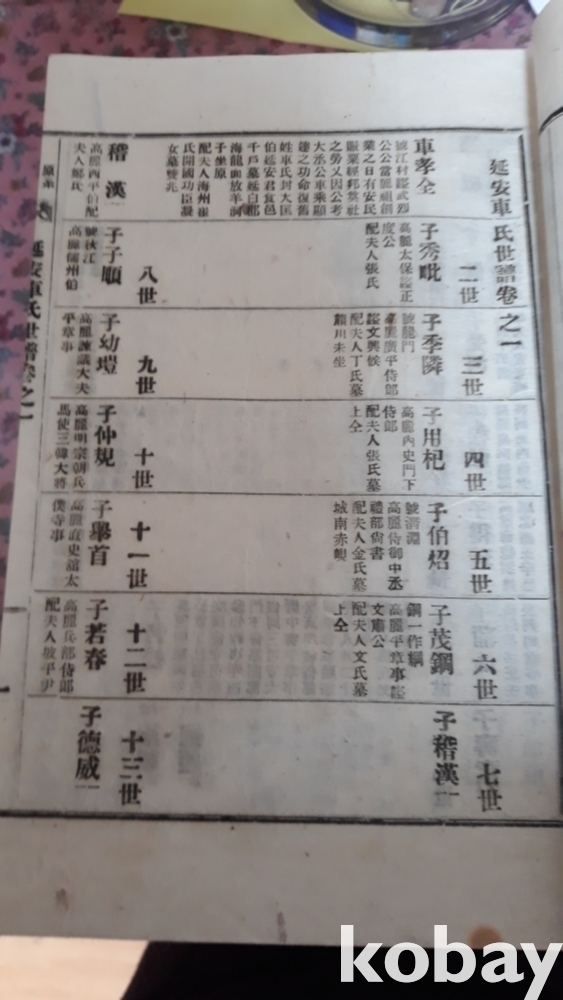 延安車氏世譜卷之一
車孝全
號江村諡武烈
公公當麗祖創
業之日有安民
之勞又因公考
大丞公車乘顯
達之功命復舊
姓車氏封大匡
伯延安君食邑
千戶墓延白郡
海龍面放羊洞
子坐原
配夫人海州崔
氏開國功臣凝
女墓雙兆
二世
子秀毗
高麗太保諡正
度公
配夫人張氏
三世
子季隣
號龍門
高麗廣平侍郎
諡文興候
配夫人丁氏墓
麟川未坐
四世
子用杞
高麗內史門下
侍郎
配夫人張氏墓
上仝
五世
子伯炤
高麗侍御中丞
禮部尙書
配夫人金氏墓
城南赤峴
六世
子茂鋼
鋼一作綱
高麗平章事諡
文康公
配夫人文氏墓
上仝
七世
子稽漢一
稽漢一
高麗西平伯配
夫人鄭氏
八世
子子順
號秋江
高麗儒州伯
九世
子幼塏
高麗諫議大夫
平章事
十世
子仲規
高麗明宗朝兵
馬使三韓大將
十一世
子擧首
高麗直史舘太
僕寺事
十二世
子若春
高麗兵部侍郎
配夫人坡平尹
十三世
子德威一
延安車氏世譜卷之一
一
kobay